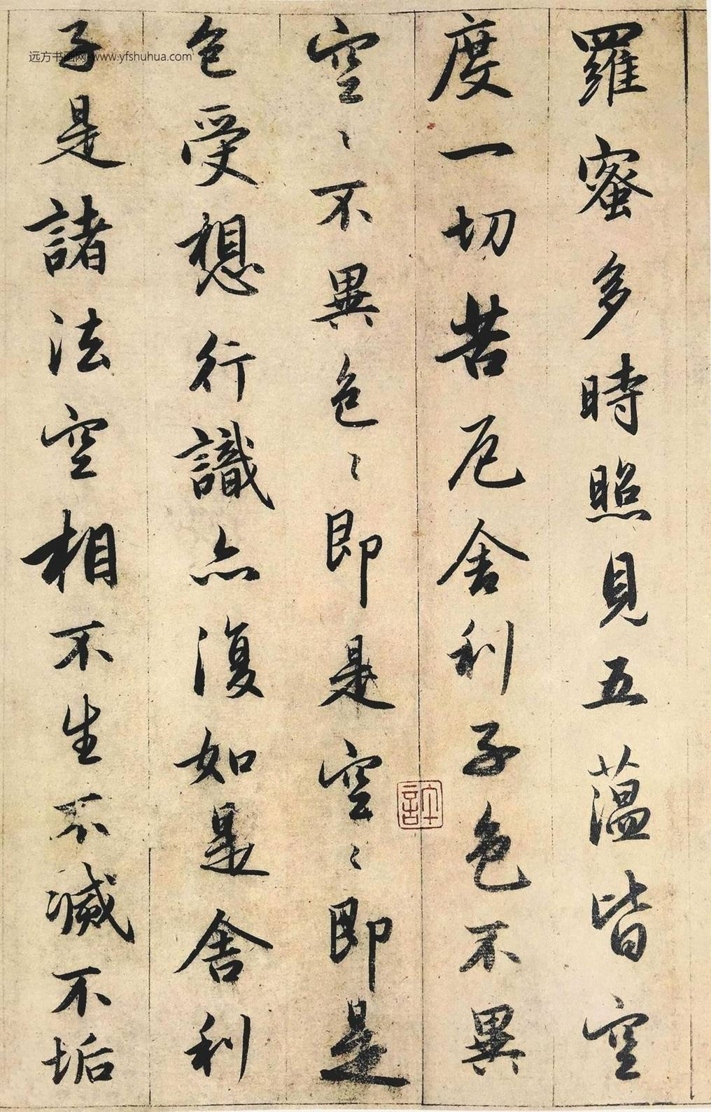 羅蜜多時照見五薀皆空
度一切苦厄舍利子色不異
空〻不異色〻即是空〻即是
色受想行識亦復如是舍利
子是諸法空相不生不滅不垢
許
远方书画网 www.yfshuhua.com